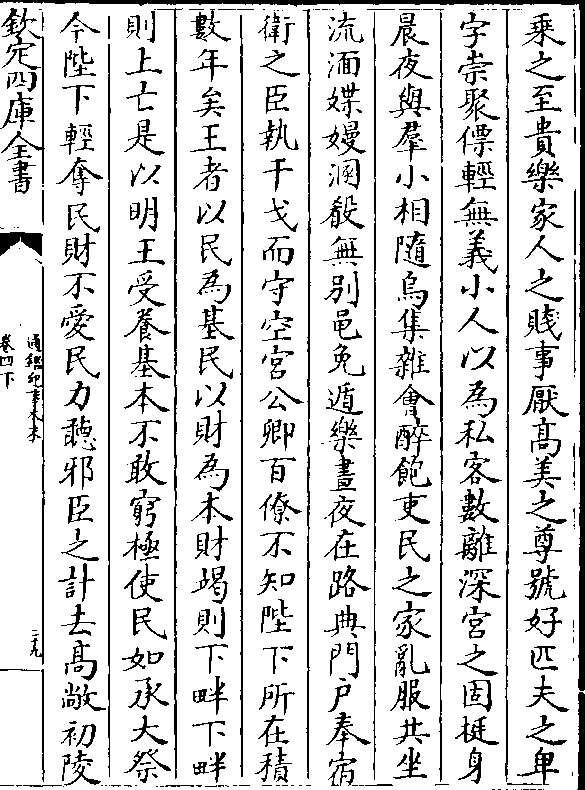 乘之至貴樂家人之賤事厭髙美之尊號好匹夫之卑
字崇聚僄輕無義小人以為私客數離深宮之固挺身
晨夜與羣小相隨烏集雜會醉飽吏民之家亂服共坐
流湎媟嫚溷殽無別黽勉遁樂晝夜在路典門戶奉宿
衛之臣執干戈而守空宮公卿百僚不知陛下所在積
數年矣王者以民為基民以財為本財竭則下畔下畔
則上亡是以明王受養基本不敢窮極使民如承大祭
今陛下輕奪民財不愛民力聽邪臣之計去髙敞初陵
欽定四庫全書
通鑑紀事本末
卷四下
二九